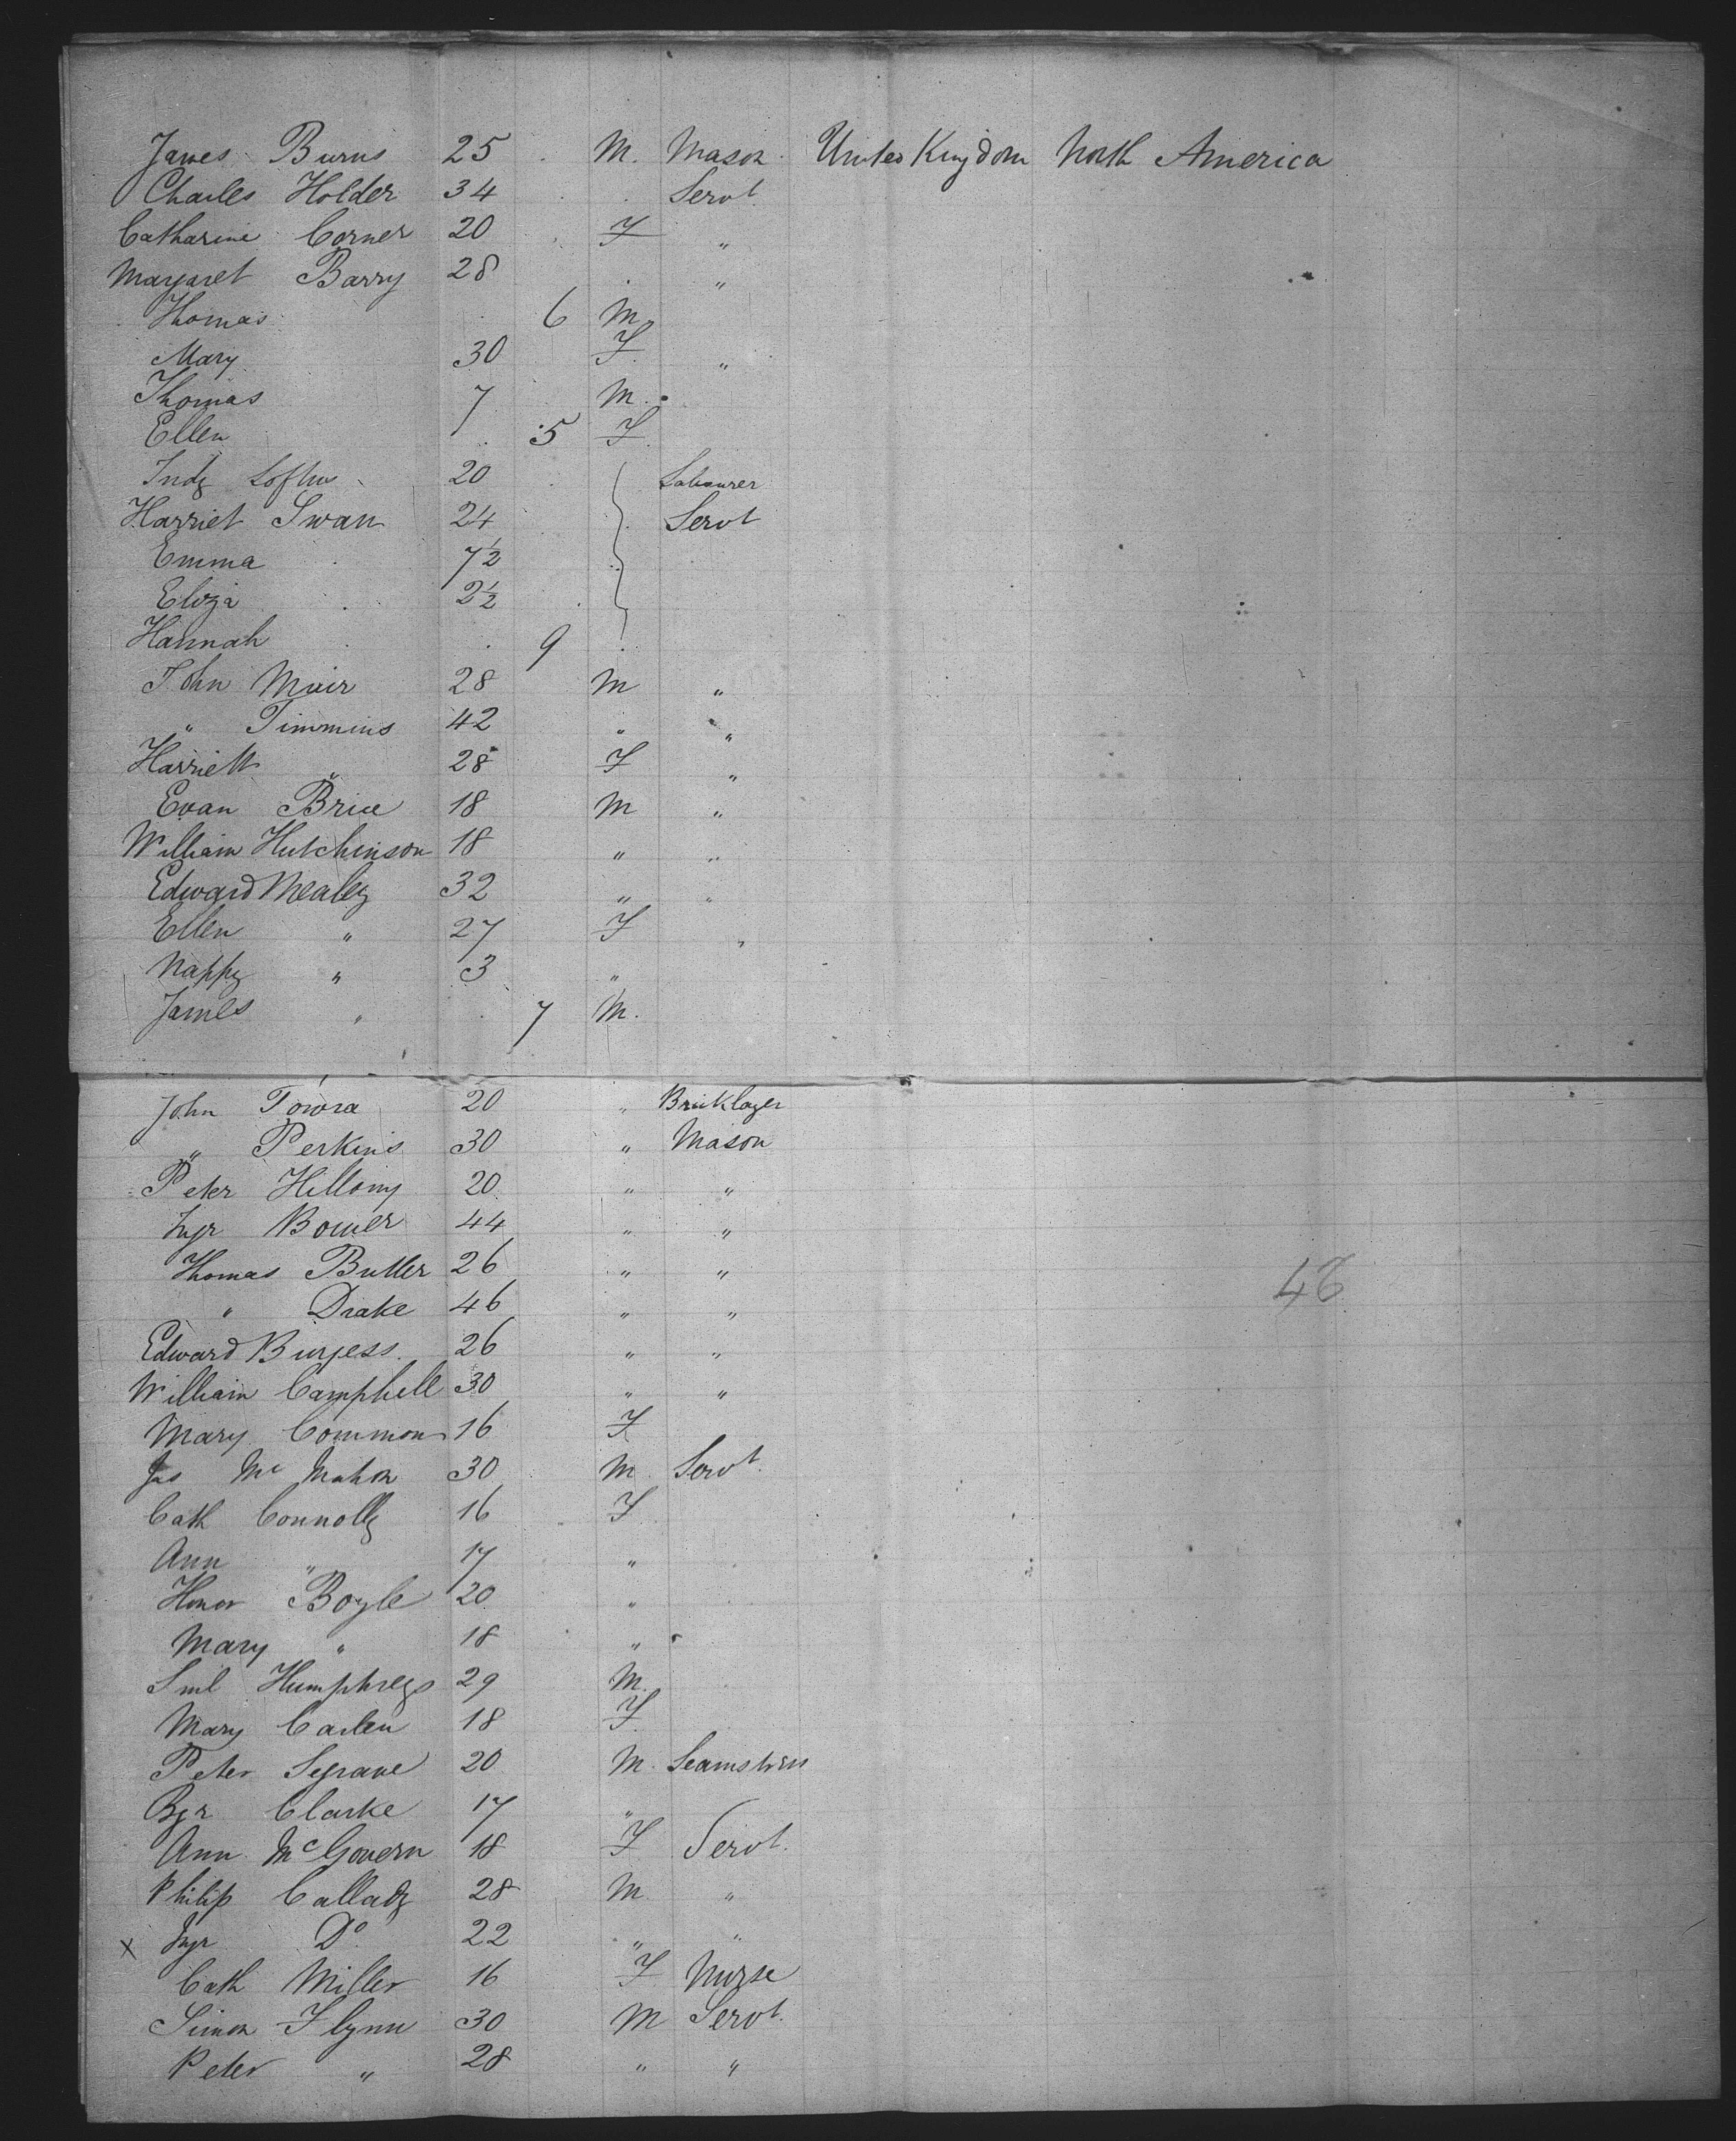 James Burns 25 M. Mason United Kingdom North America
Charles Holder 34 Servt.
Catharine Corner 20 F "
Margaret Barry 28 "
Thomas 6 M
Mary 30 F "
Thomas 7 M.
Ellen 5 F
Judy Loftus 20 Labourer
Harriet Swan 24 Servt
Emma 7½
Eliza 2½
Hannah 9
John Muir 28 M "
" Timmins 42 " "
Harriett " 28 F "
Evan Brice 18 M "
William Hutchinson 18 " "
Edward Mealey 32 " "
Ellen " 27 F "
Nappy " 3 "
James " 7 M.
John 20 " Bricklayer
" Perkins 30 " Mason
Peter 20 " "
Bower 44 " "
Thomas Butler 26 " "
" Drake 46 " "
Edward Burgess 26 " "
William Campbell 30 " "
Mary Common 16 F
Jas McMahon 30 M Servt.
Cath Connolly 16 F
Ann " 17 "
Honor Boyle 20 "
Mary " 18 "
Saml Humphreys 29 M.
Mary Carlen 18 F
Peter Segrave 20 M. Seamstress
Clarke 17 "
Ann McGovern 18 F Servt.
Philip 28 M "
x Do 22 " "
Cath Miller 16 F Nurse
Simon Flynn 30 M Servt.
Peter " 28 " "